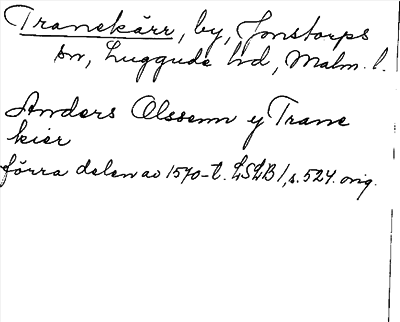 Tranekärr, by, Jonstorps
sn, Luggude hd, Malm. l.
Anders Olssenn y Trane
kier
förra delen av 1570-t. LSLB 1, s. 524. orig.